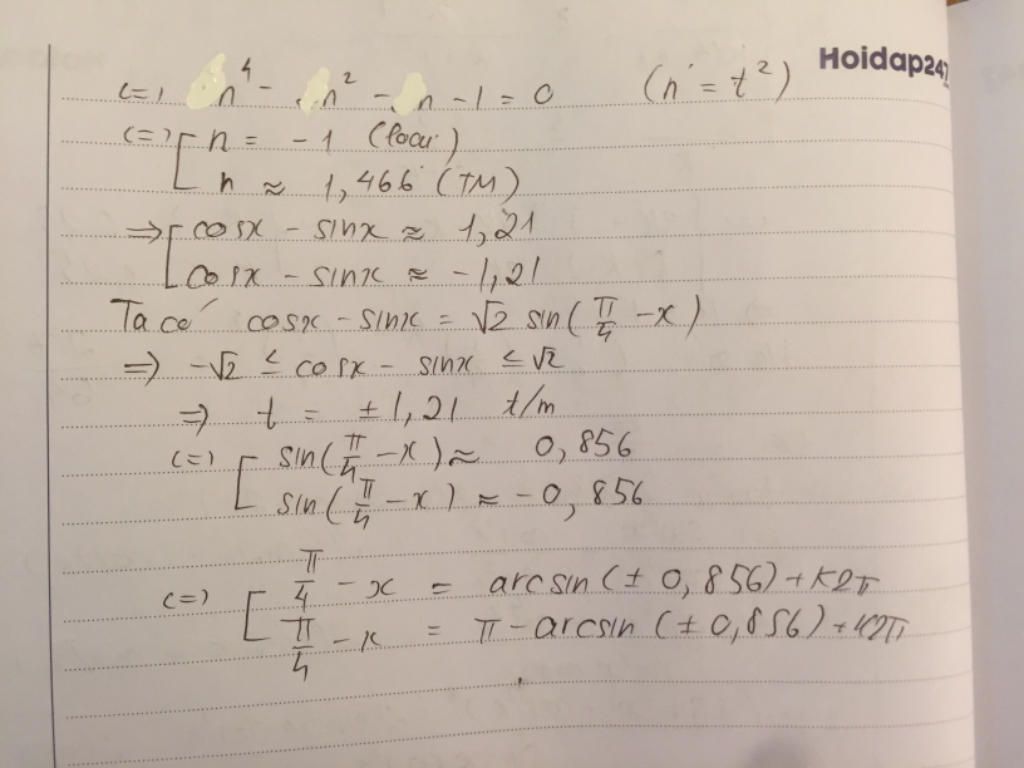 Hoidap247
<=> n⁴ - n² - n - 1 = 0 (n = t²)
<=> [ n = -1 (loại)
n ≈ 1,466 (TM)
=> [ cosx - sinx ≈ 1,21
cosx - sinx ≈ -1,21
Ta có cosx - sinx = √2 sin(π/4 - x)
=> -√2 ≤ cosx - sinx ≤ √2
=> t = ±1,21 t/m
<=> [ sin(π/4 - x) ≈ 0,856
sin(π/4 - x) ≈ -0,856
<=> [ π/4 - x = arcsin(±0,856) + k2π
π/4 - x = π - arcsin(±0,856) + k2π